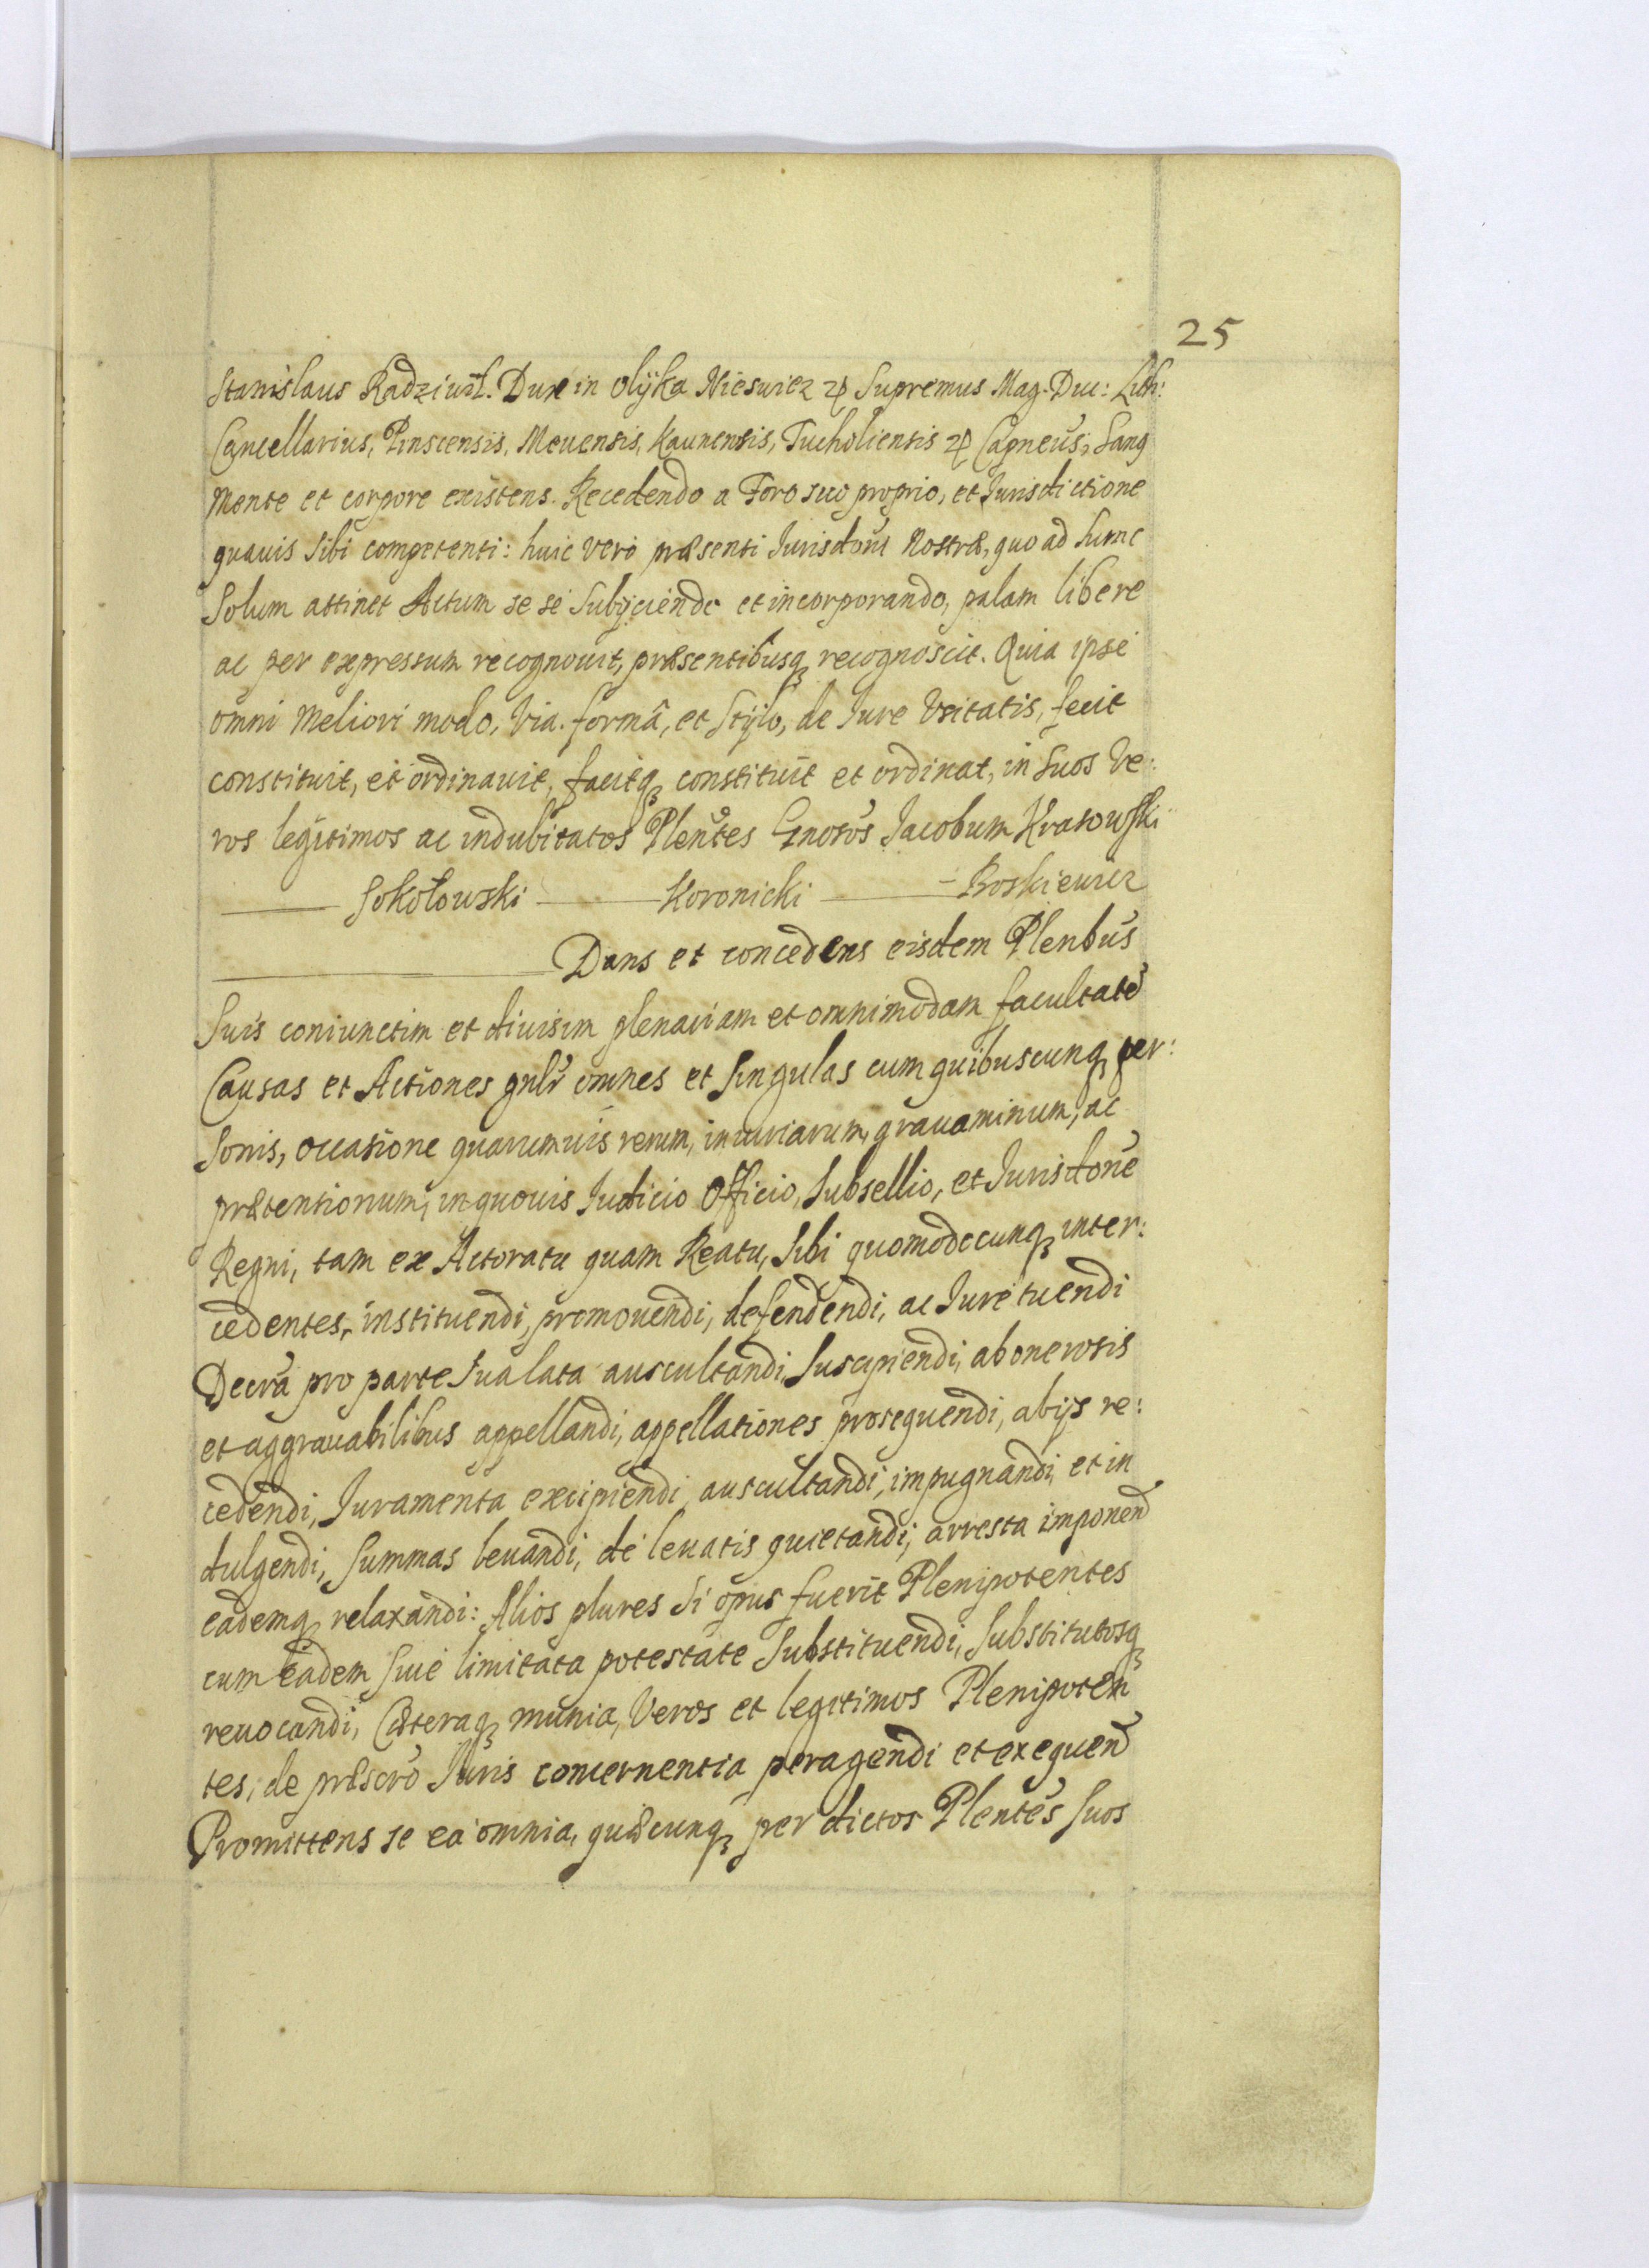 25
Stanislaus Radziwił. Dux in Olÿka Nieswiez &c Supremus Mag. Duc: Lith:
Cancellarius, Pinscensis, Meuensis, Kaunensis, Tucholiensis &c Capneus,
mente et corpore existens. Recedendo a Foro suo proprio, et Iurisdictione
quauis sibi competenti: huic vero præsenti Iurisdoni Nostræ, quo ad hunc
Solum attinet Actum se se Subÿciendo et incorporando, palam libere
ac per expressum recognouit, præsentibusq recognoscit. Quia ipse
omni meliori modo, Via. formâ, et Stÿlo, de Iure Vsitatis, fecit
constituit, et ordinauit, facitq constituit et ordinat, in suos Ve:
ros legitimos ac indubitatos Plentes Gnosos Iacobum Krasowski
Sokołowski Koronicki Roskiewicz
Dans et concedens eisdem Plenbus
Suis coniunctim et diuisim plenariam et omnimodam facultate
Causas et Actiones gnlr omnes et Singulas cum quibuscunq per:
sonis, occasione quarumuis rerum, iniuriarum, grauaminum, ac
prætensionum, in quouis Iudicio Officio, Subsellio, et Iurisdone
Regni, tam ex Actoratu quam Reatu, Sibi quomodocunq inter:
cedentes, instituendi, promouendi, defendendi, ac Iure tuendi
Decra pro parte sua lata auscultandi, Suscipiendi, ab onerosis
et aggrauabilibus appellandi, appellationes prosequendi, ab ijs re:
cedendi, Iuramenta excipiendi auscultandi, impugnandi, et in
dulgendi, Summas leuandi, de leuatis quietandi, arresta imponend
eademq relaxandi: Alios plures Si opus fuerit Plenipotentes
cum eadem siue limitata potestate Substituendi, Substitutosq
reuocandi, Cæteraq munia, Veros et legitimos Plenipoten
tes, de præscro Iuris concernentia peragendi et exequen
Promittens se ea omnia, quæcunq per dictos Plentes Suos